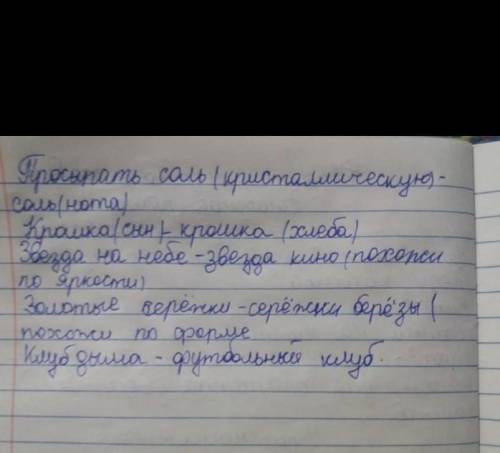 Просыпать соль (кристаллическую)-
соль(нота)
Крошка(снн)- крошка (хлеба)
Звезда на небе - звезда кино (похожи
по яркости)
Золотые серёжки - серёжки берёзы (
похожи по форме
Клуб дыма - футбольный клуб.